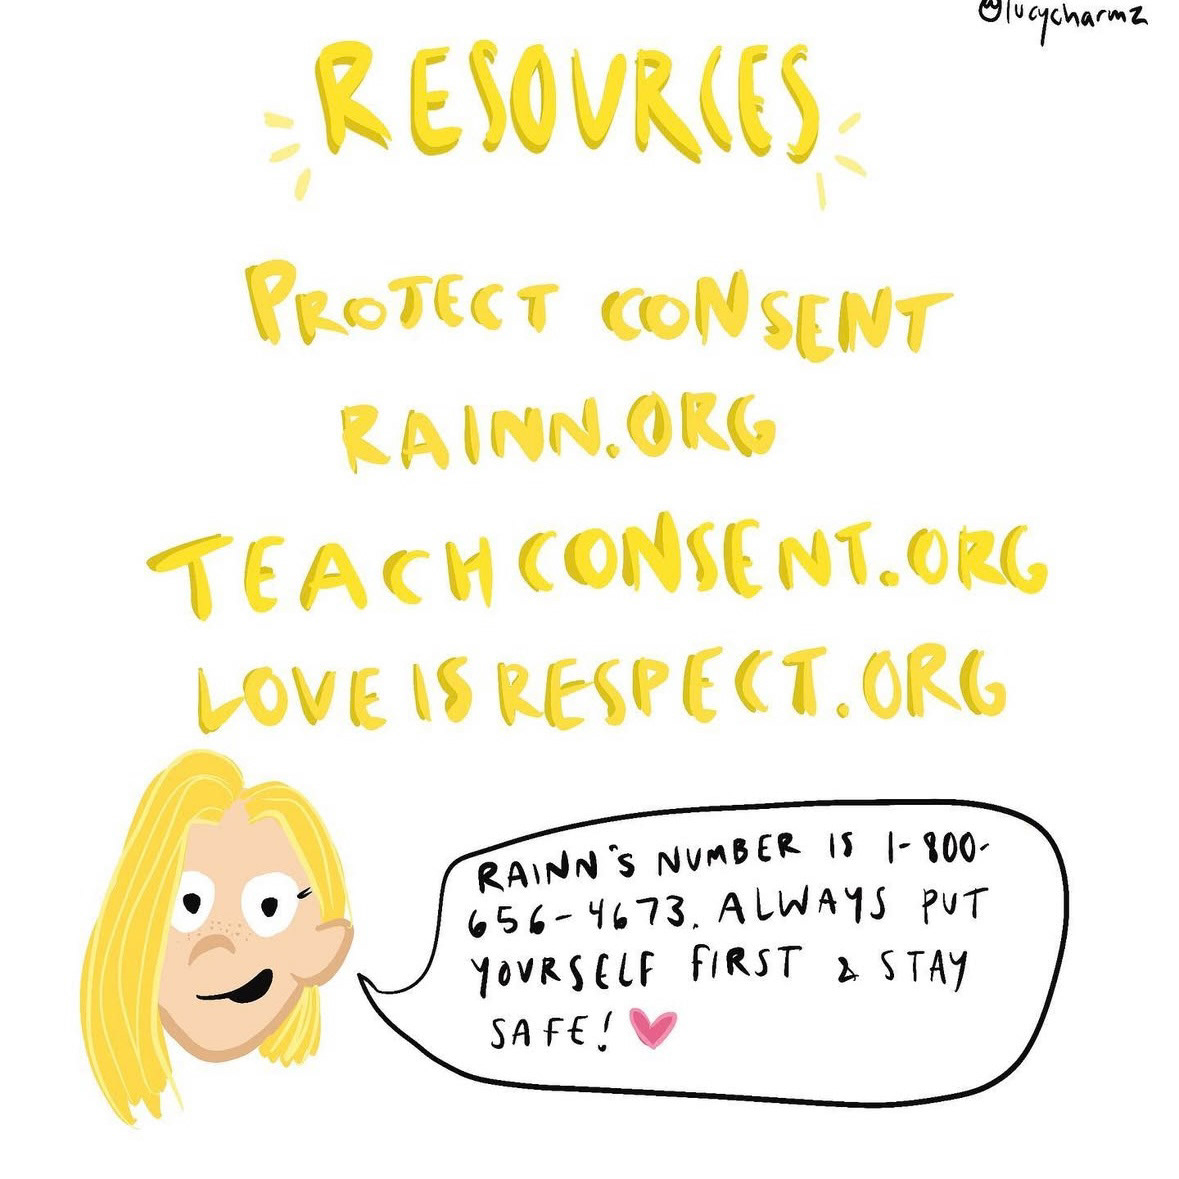 @lucycharmz
RESOURCES
PROJECT CONSENT
RAINN.ORG
TEACHCONSENT.ORG
LOVEISRESPECT.ORG
RAINN'S NUMBER IS 1-800-
656-4673. ALWAYS PUT
YOURSELF FIRST & STAY
SAFE!